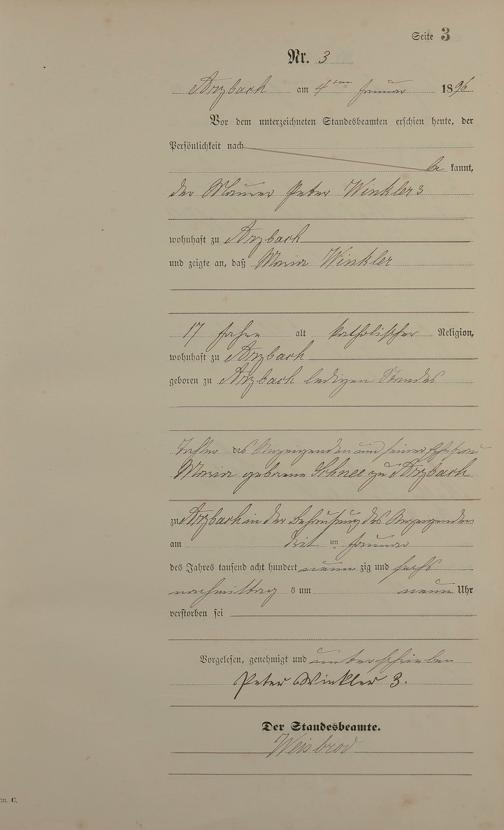 Seite 3
Nr. 3
Arzbach am 4 ten Januar 1896
Vor dem unterzeichneten Standesbeamten erschien heute, der
Persönlichkeit nach
be kannt,
der Maurer Peter Winkler 3
wohnhaft zu Arzbach
und zeigte an, daß Maria Winkler
17 Jahre alt katholischer Religion,
wohnhaft zu Arzbach
geboren zu Arzbach ledigen Standes
Tochter des Anzeigenden und seiner Ehefrau
Maria geborene Schnee zu Arzbach
zu Arzbach in der Behausung des Anzeigenden
am ten Januar
des Jahres tausend acht hundert neun zig und sechs
nachmittag s um neun Uhr
verstorben sei
Vorgelesen, genehmigt und unterschrieben
Peter Winkler 3.
Der Standesbeamte.
Weisbrod
C.